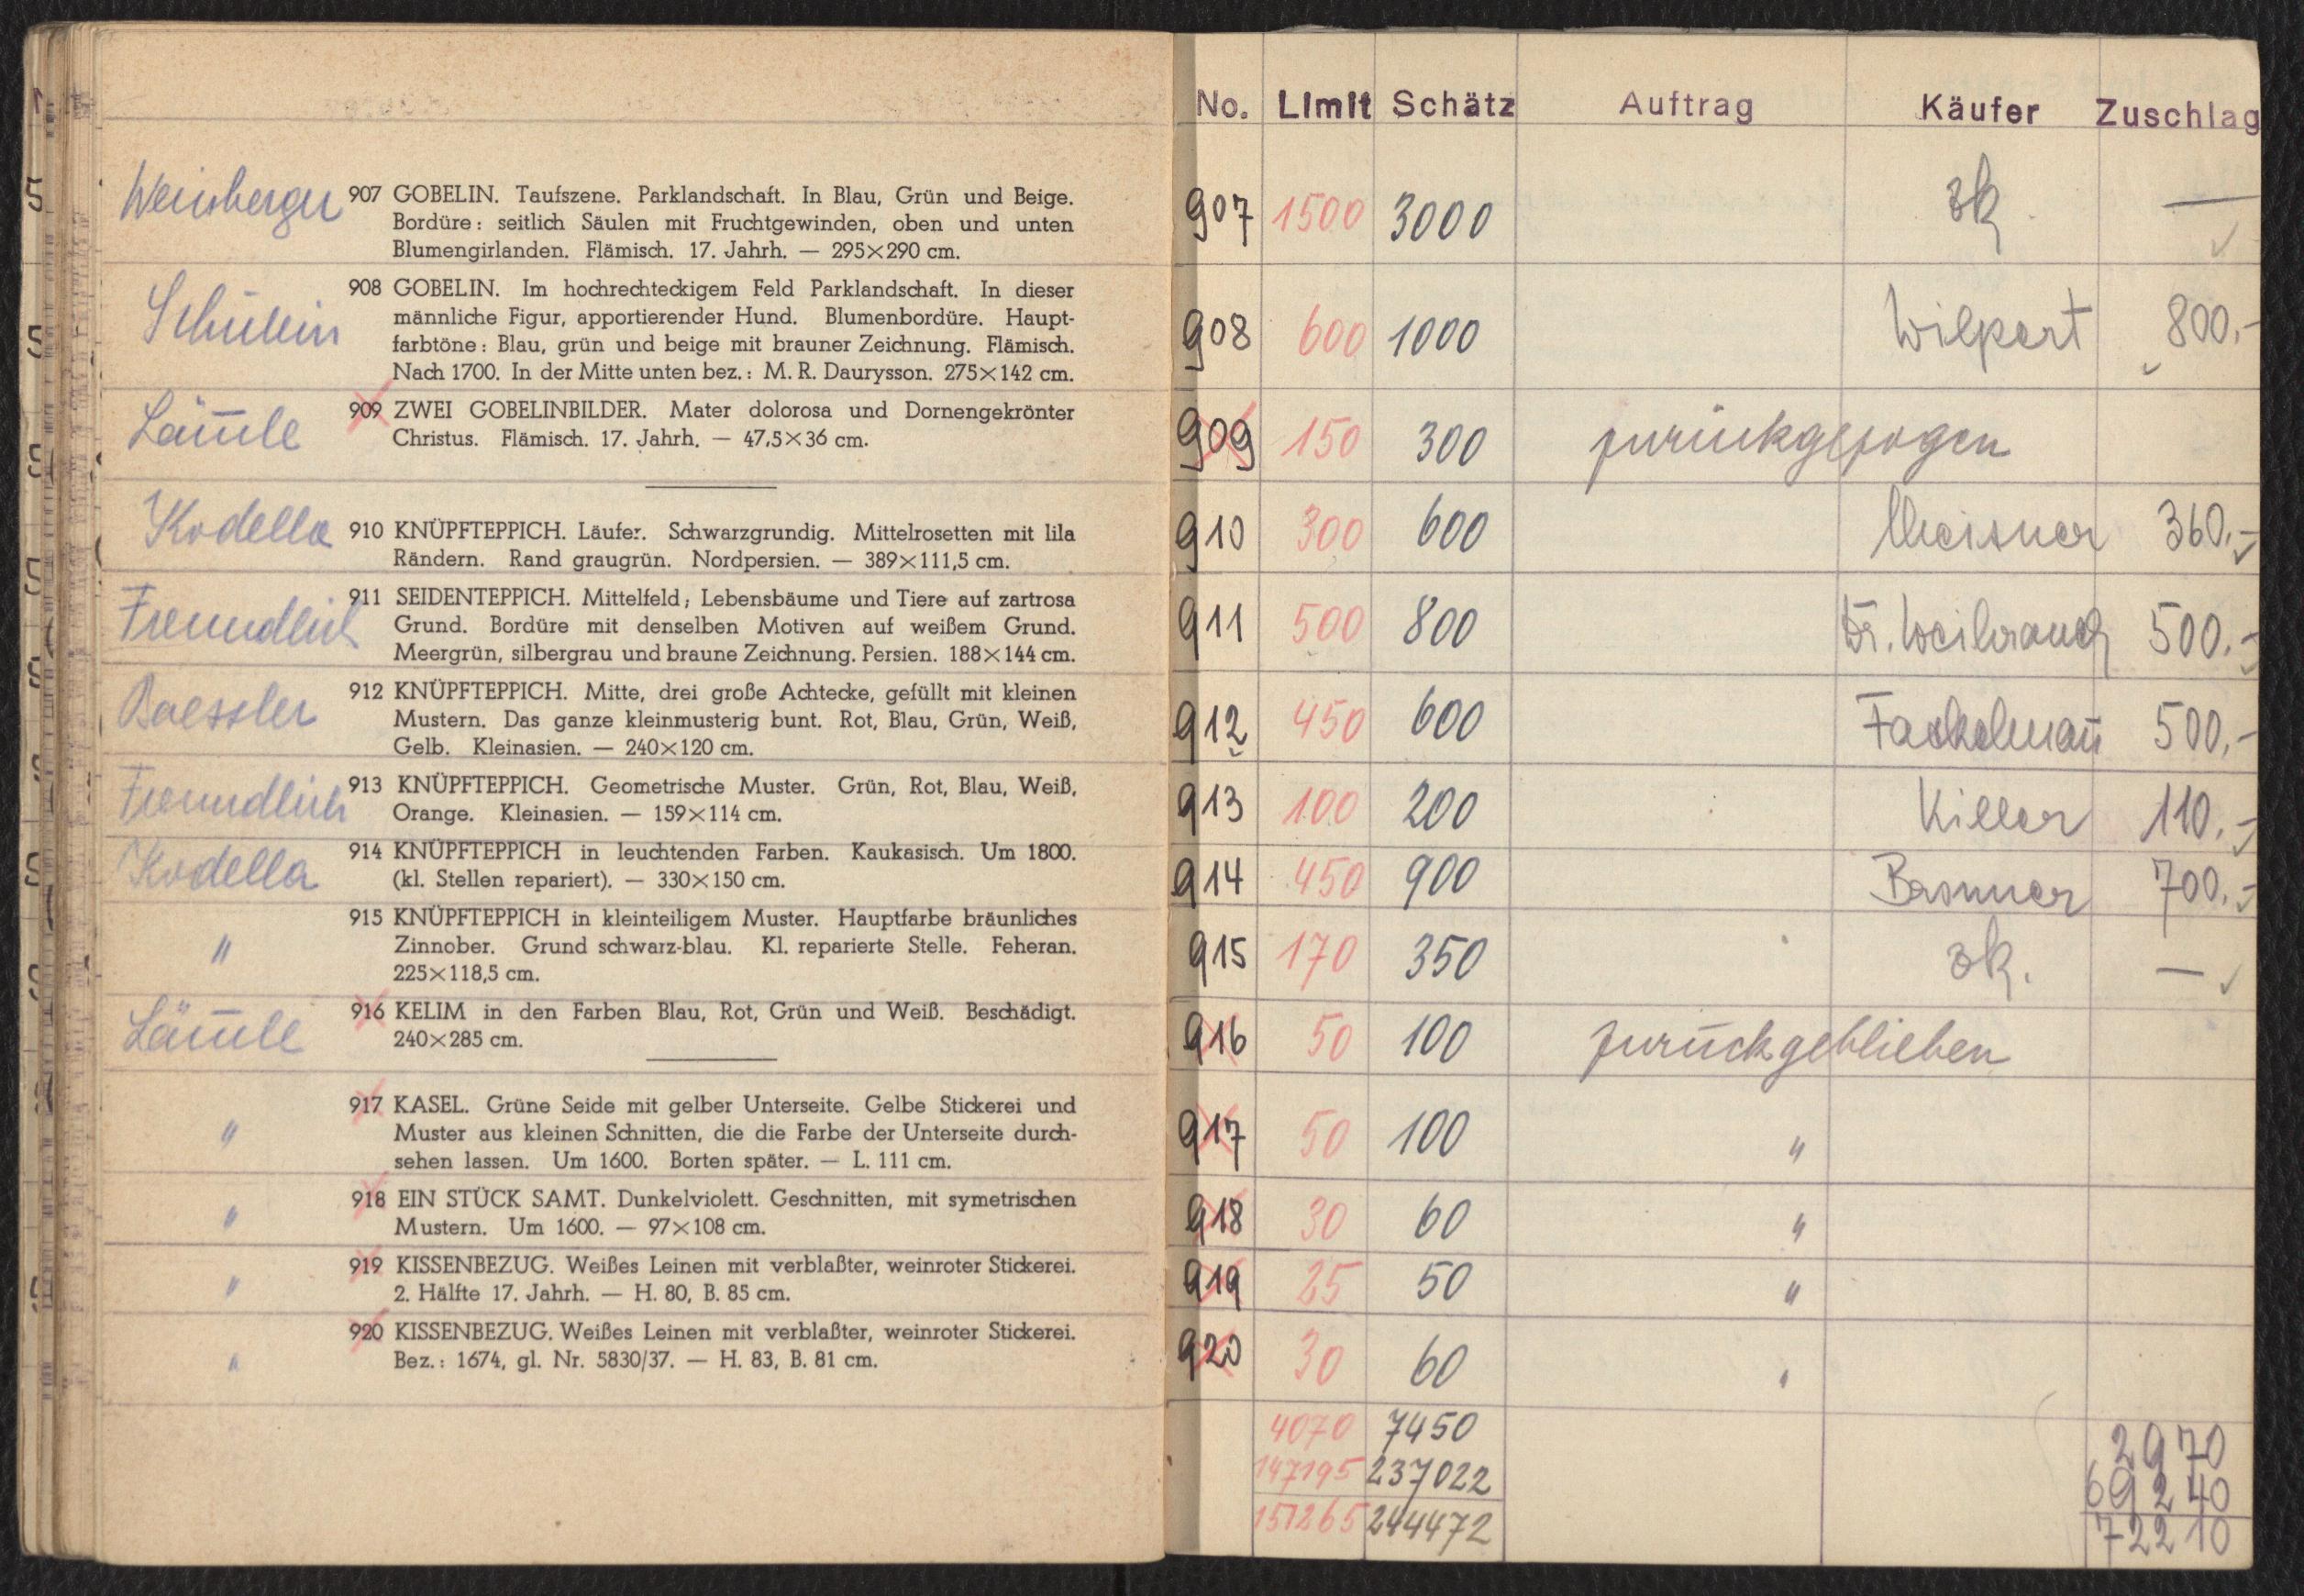 Weinberger 907 GOBELIN. Taufszene. Parklandschaft. In Blau, Grün und Beige.
Bordüre: seitlich Säulen mit Fruchtgewinden, oben und unten
Blumengirlanden. Flämisch. 17. Jahrh. — 295×290 cm.
Schülein 908 GOBELIN. Im hochrechteckigem Feld Parklandschaft. In dieser
männliche Figur, apportierender Hund. Blumenbordüre. Haupt-
farbtöne: Blau, grün und beige mit brauner Zeichnung. Flämisch.
Nach 1700. In der Mitte unten bez.: M. R. Daurysson. 275×142 cm.
Läm̅le 909 ZWEI GOBELINBILDER. Mater dolorosa und Dornengekrönter
Christus. Flämisch. 17. Jahrh. — 47,5×36 cm.
Kodella 910 KNÜPFTEPPICH. Läufer. Schwarzgrundig. Mittelrosetten mit lila
Rändern. Rand graugrün. Nordpersien. — 389×111,5 cm.
Freundlich 911 SEIDENTEPPICH. Mittelfeld; Lebensbäume und Tiere auf zartrosa
Grund. Bordüre mit denselben Motiven auf weißem Grund.
Meergrün, silbergrau und braune Zeichnung. Persien. 188×144 cm.
Baessler 912 KNÜPFTEPPICH. Mitte, drei große Achtecke, gefüllt mit kleinen
Mustern. Das ganze kleinmusterig bunt. Rot, Blau, Grün, Weiß,
Gelb. Kleinasien. — 240×120 cm.
Freundlich 913 KNÜPFTEPPICH. Geometrische Muster. Grün, Rot, Blau, Weiß,
Orange. Kleinasien. — 159×114 cm.
Kodella 914 KNÜPFTEPPICH in leuchtenden Farben. Kaukasisch. Um 1800.
(kl. Stellen repariert). — 330×150 cm.
" 915 KNÜPFTEPPICH in kleinteiligem Muster. Hauptfarbe bräunliches
Zinnober. Grund schwarz-blau. Kl. reparierte Stelle. Feheran.
225×118,5 cm.
Läm̅le 916 KELIM in den Farben Blau, Rot, Grün und Weiß. Beschädigt.
240×285 cm.
" 917 KASEL. Grüne Seide mit gelber Unterseite. Gelbe Stickerei und
Muster aus kleinen Schnitten, die die Farbe der Unterseite durch-
sehen lassen. Um 1600. Borten später. — L. 111 cm.
" 918 EIN STÜCK SAMT. Dunkelviolett. Geschnitten, mit symetrischen
Mustern. Um 1600. — 97×108 cm.
" 919 KISSENBEZUG. Weißes Leinen mit verblaßter, weinroter Stickerei.
2. Hälfte 17. Jahrh. — H. 80, B. 85 cm.
" 920 KISSENBEZUG. Weißes Leinen mit verblaßter, weinroter Stickerei.
Bez.: 1674, gl. Nr. 5830/37. — H. 83, B. 81 cm.
No. Limit Schätz Auftrag Käufer Zuschlag
907 1500 3000 zk. —
908 600 1000 Wilpert 800.-
909 150 300 zurückgezogen
910 300 600 Meisner 360.-
911 500 800 Dr. Weihrauch 500.-
912 450 600 Fackelman̅ 500.-
913 100 200 Killer 110.-
914 450 900 700.-
915 170 350 zk. —
916 50 100 zurückgeblieben
917 50 100 "
918 30 60 "
919 25 50 "
920 30 60 "
4070 7450 2970
147195 237022 69240
151265 244472 72210